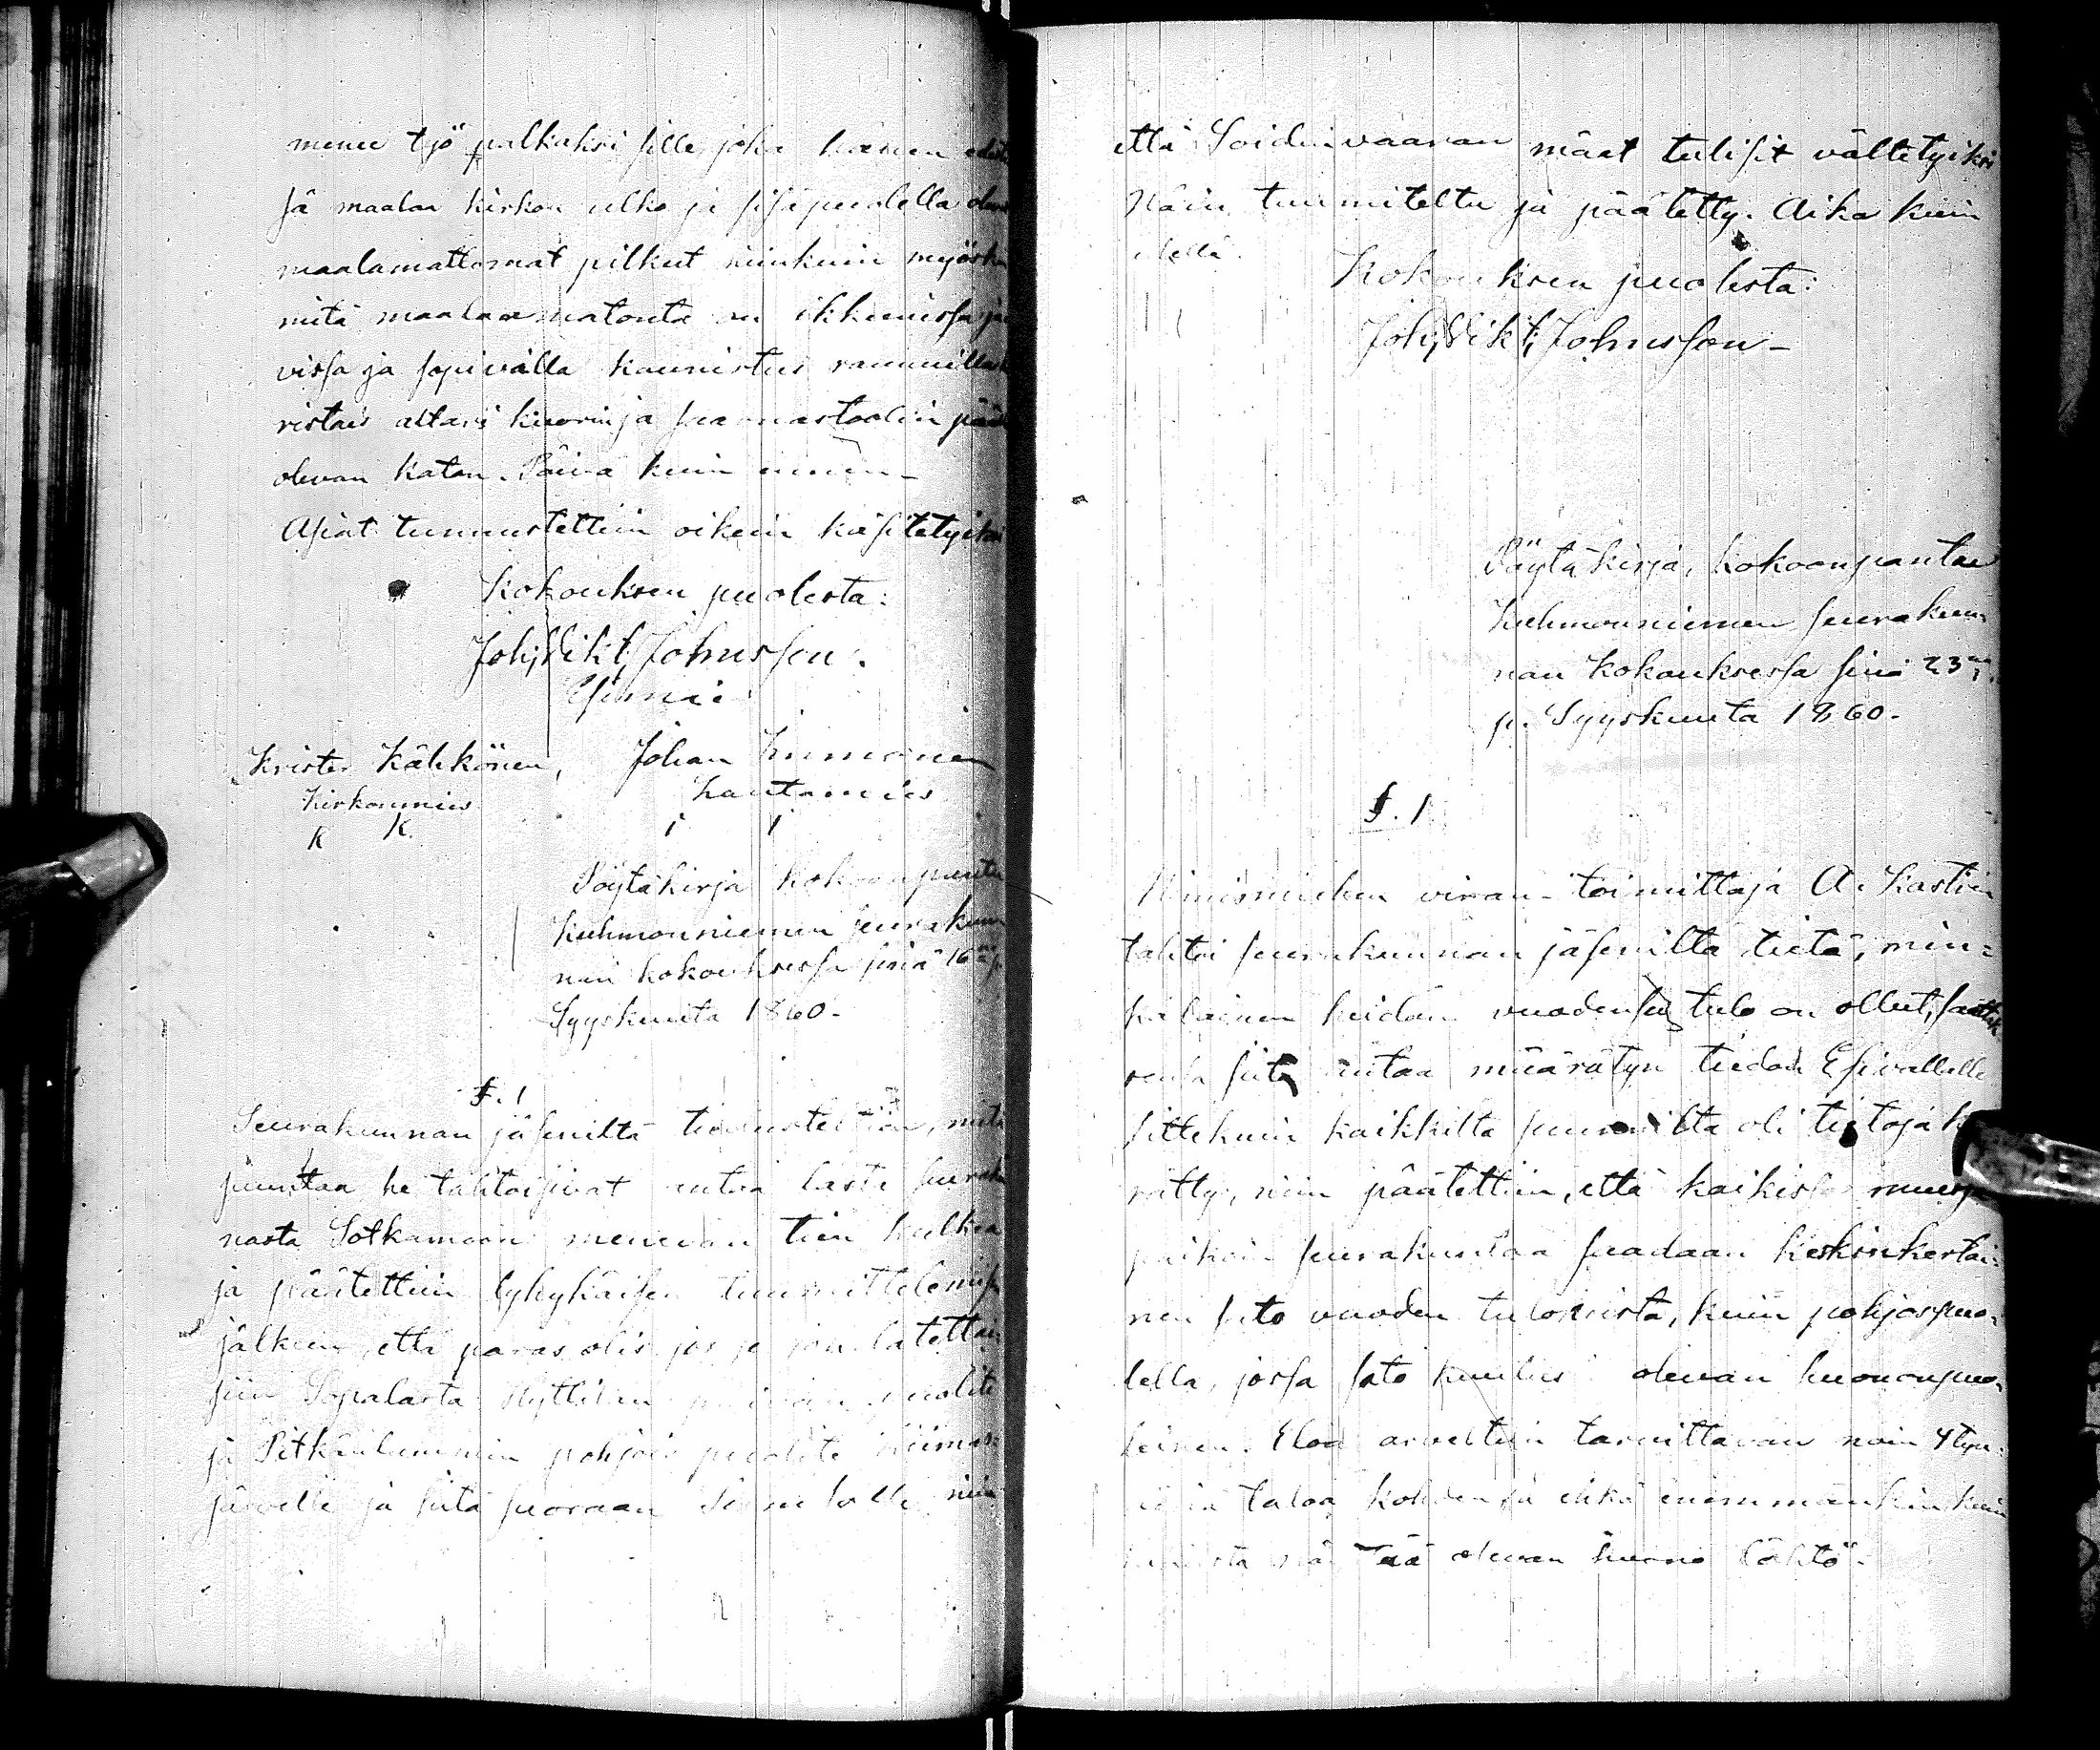 menee työ palkaksi sille, joka hänen
sä maalaa kirkon ulko ja sisäpuolella
maalamattomat pilkut niinkuin myöskin
mitä maalaamatonta on ikkunissa ja
vissa ja sopivalla kaunistus
ristais altari kuorin ja saarnastoolin
olevan katon. Päivä kuin ennen_
Asiat tunnustettiin oikein käsitetyiksi
Kokouksen puolesta:
Joh; Vikt; Johnsson.
Krister Kähkönen, Johan Immonen
Kirkonmies Lautamies
K K. I I
Pöytäkirja kokoonpantu
Kuhmonniemen seurakun
nan kokouksessa sinä 16
Syyskuuta 1860-
§. 1
Seurakunnan jäseniltä tiedustettiin, mitä
suuntaa he tahtoisivat antaa tästä
nasta Sotkamoon menevän tien kulkea
ja päätettiin lyhykäisen
jälkeen, että paras olis, jos se
siin puolite
ja pohjois puolite
järvelle ja siitä suoraan niin
että Soidinvaaran mäet tulisit vältetyiksi
Näin tuumiteltu ja päätetty. Aika kuin
edellä.
Kokouksen puolesta:
Joh; Vikt; Johnsson-
Pöytäkirja, kokoonpantu
Kuhmonniemen seurakun
nan kokouksessa sinä 23
p. Syyskuuta 1860-
§. 1
Nimismiehen viran-toimittaja A. Kastrin
tahtoi seurakunnan jäseniltä tietä, min=
kälainen heidän vuodensa tulo on ollut,
siitä antaa määrätyn tiedon Esivallalle
sittekuin kaikkilta suunnilta oli tietoja
rätty, niin päätettiin, että kaikissa muissa
paikoin seurakuntaa saadaan keskinkertai=
nen sato vuoden tulokista, kuin pohjospuo=
lella, jossa sato kuului olevan huononpuo=
leinen. Eloa arveltiin tarvittavan noin 4 tyn=
taloa kohden ja ehkä enemmänkin kuin
olevan huono lähtö.